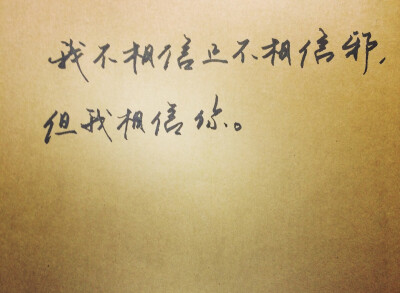 我不相信正不相信邪，
但我相信你。